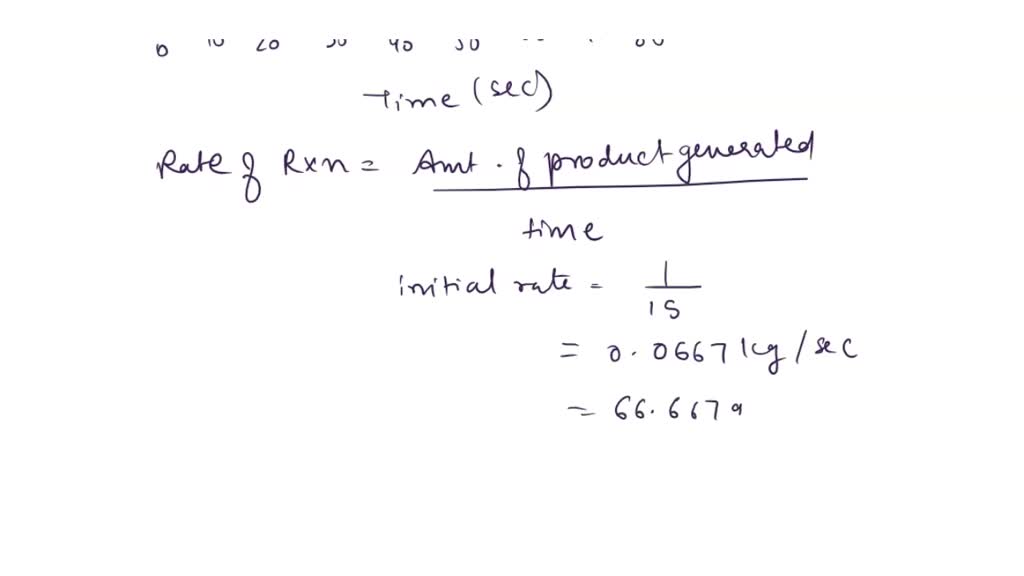 0 10 20 30 40 50
Time (sec)
Rate of Rxn = Amt. of product generated
time
initial rate = 1
15
= 0.0667 kg/sec
= 66.667